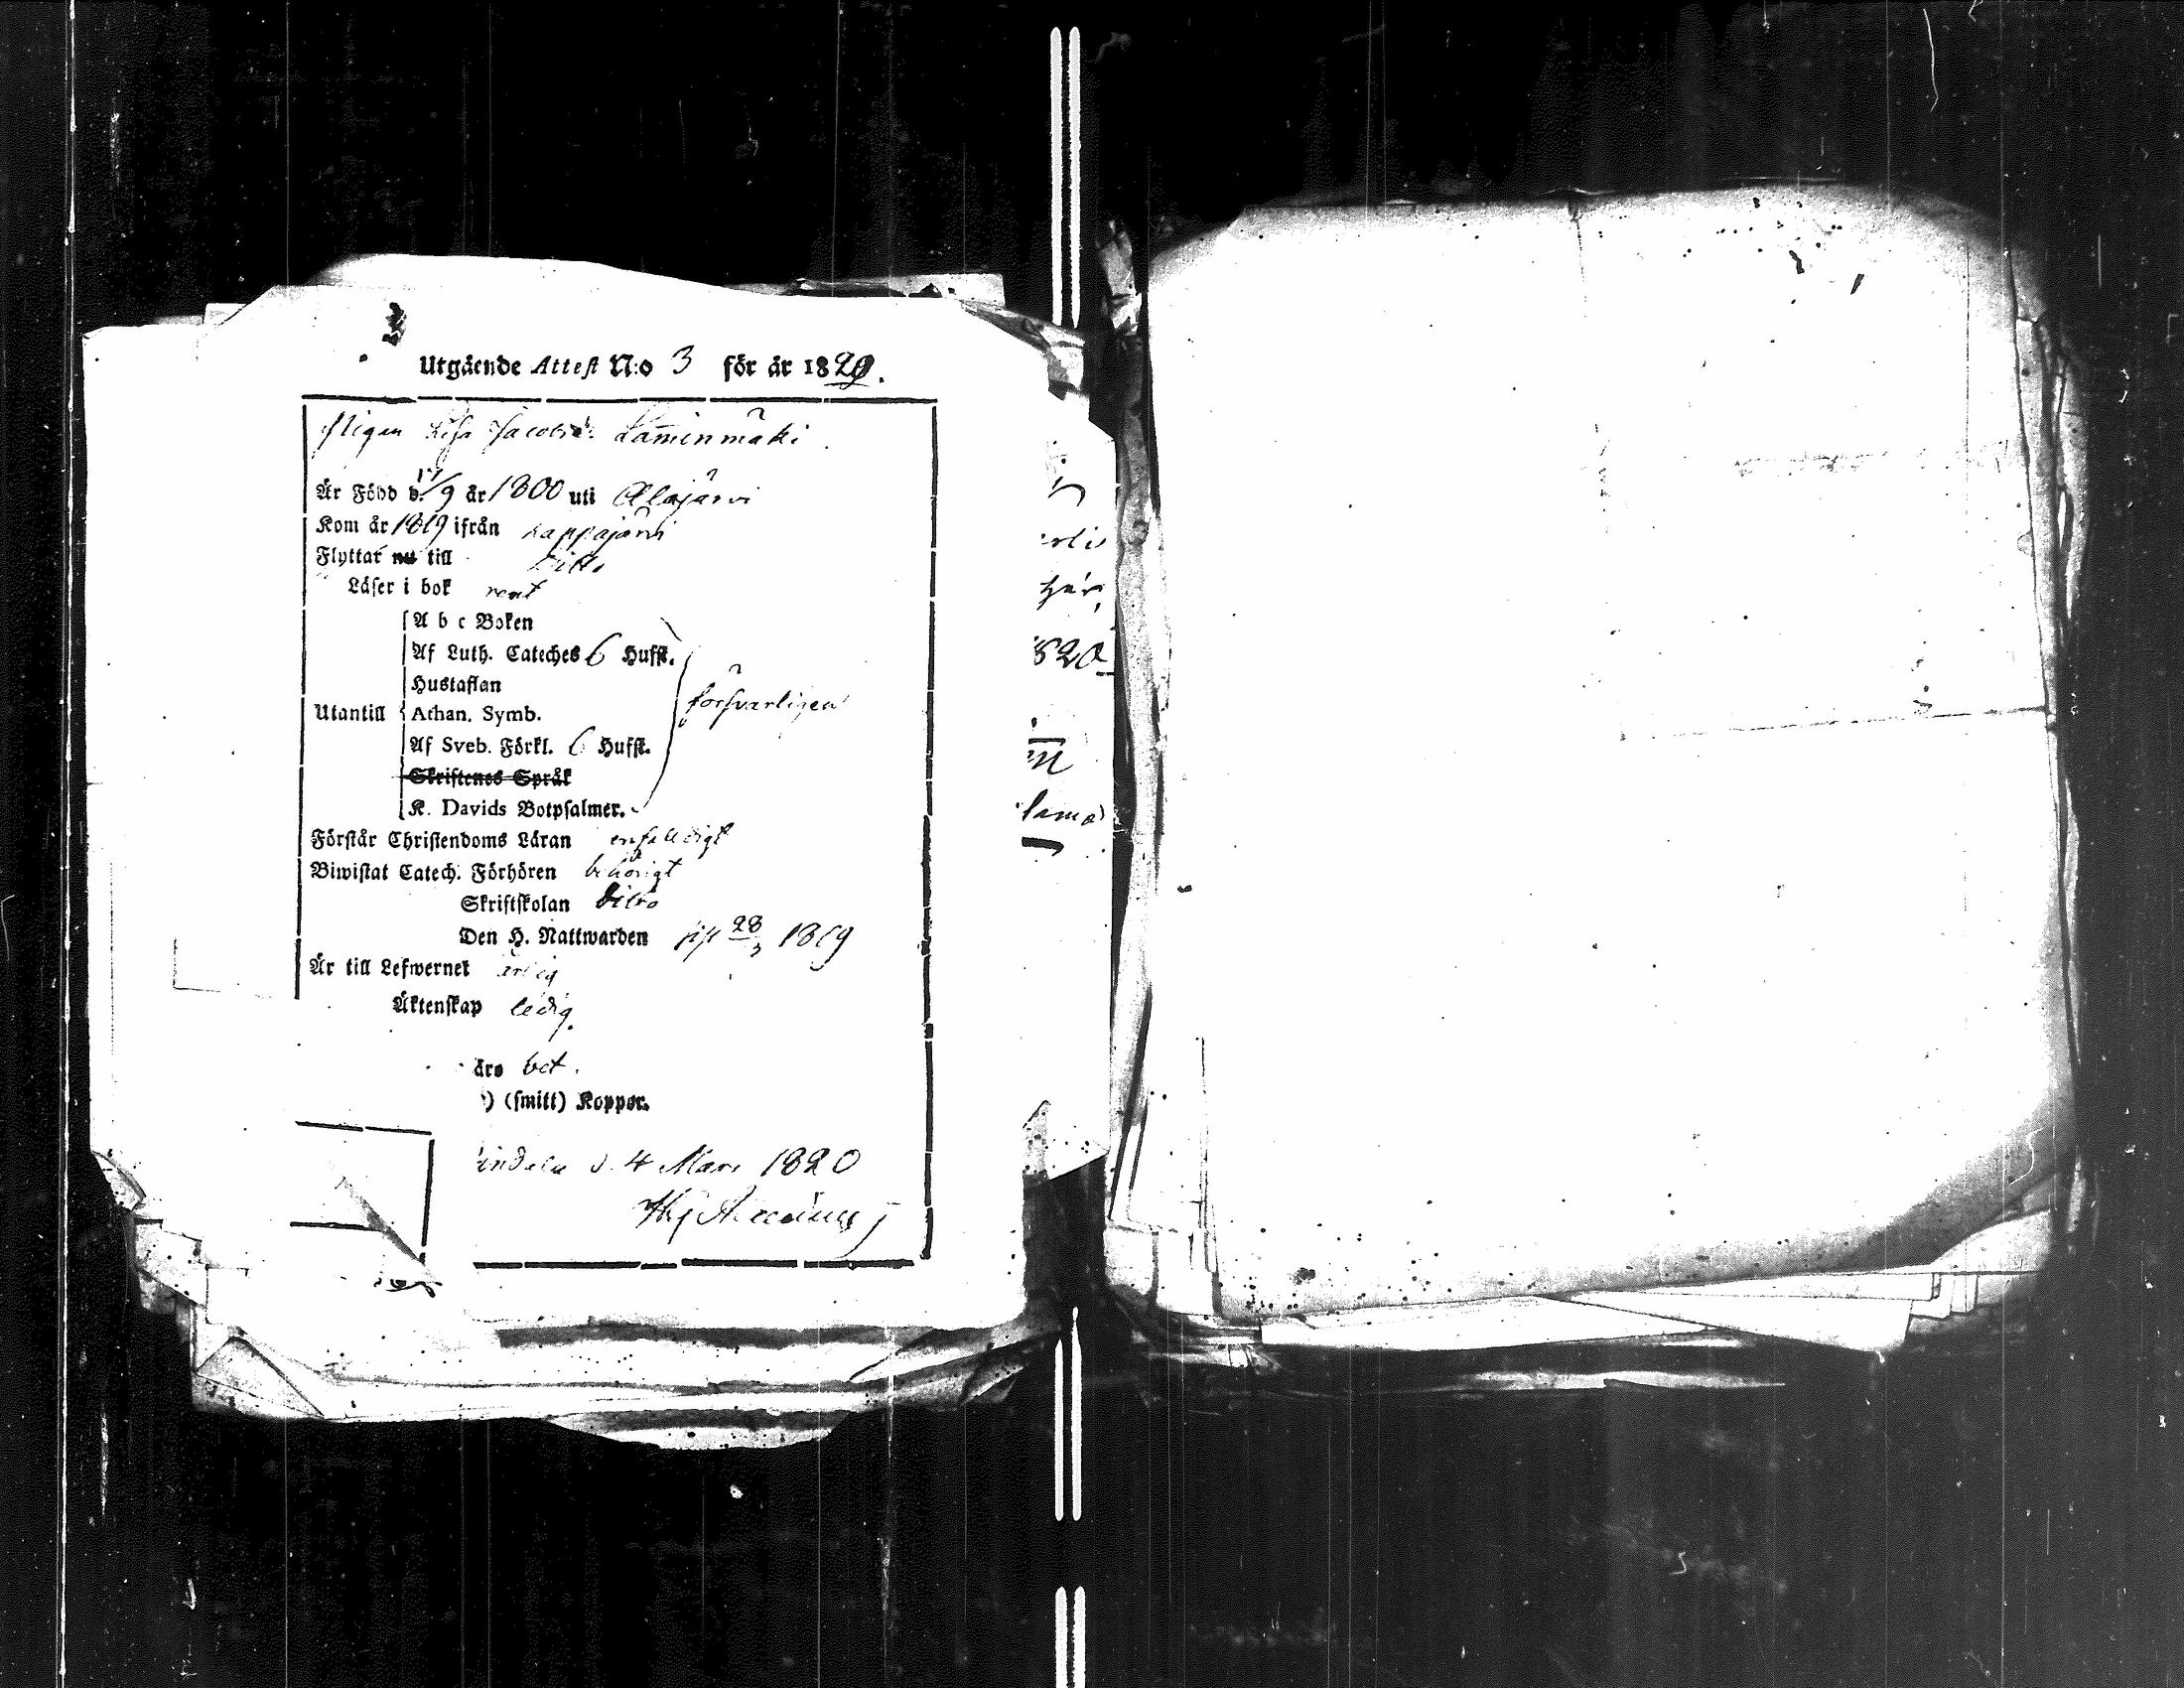 Utgående Attest N:o 3 för år 1820.
Pigan Lisa Jacobsd. Laminmäki.
Är Född d. 17/9 år 1800 uti Alajärvi
Kom år 1819 ifrån Lappajärvi
Flyttar nu till Ditto
Läser i bok rent
A b c Boken
Af Luth. Cateches 6 Hufst.
Hustaflan
Utantill Athan. Symb. försvarligen
Af Sveb. Förkl. 6 Hufst.
Skriftenes Språk
K. Davids Botpsalmer.
Förstår Christendoms Läran enfaldigt
Biwistat Catech. Förhören behörigt
Skriftskolan ditto
Den H. Nattwarden sist 28/3 1819
Är till Lefwernet ärlig
Äktenskap ledig.
äro bet.
) (smitt) Koppor.
indala d. 4 Mars 1820
820
lama